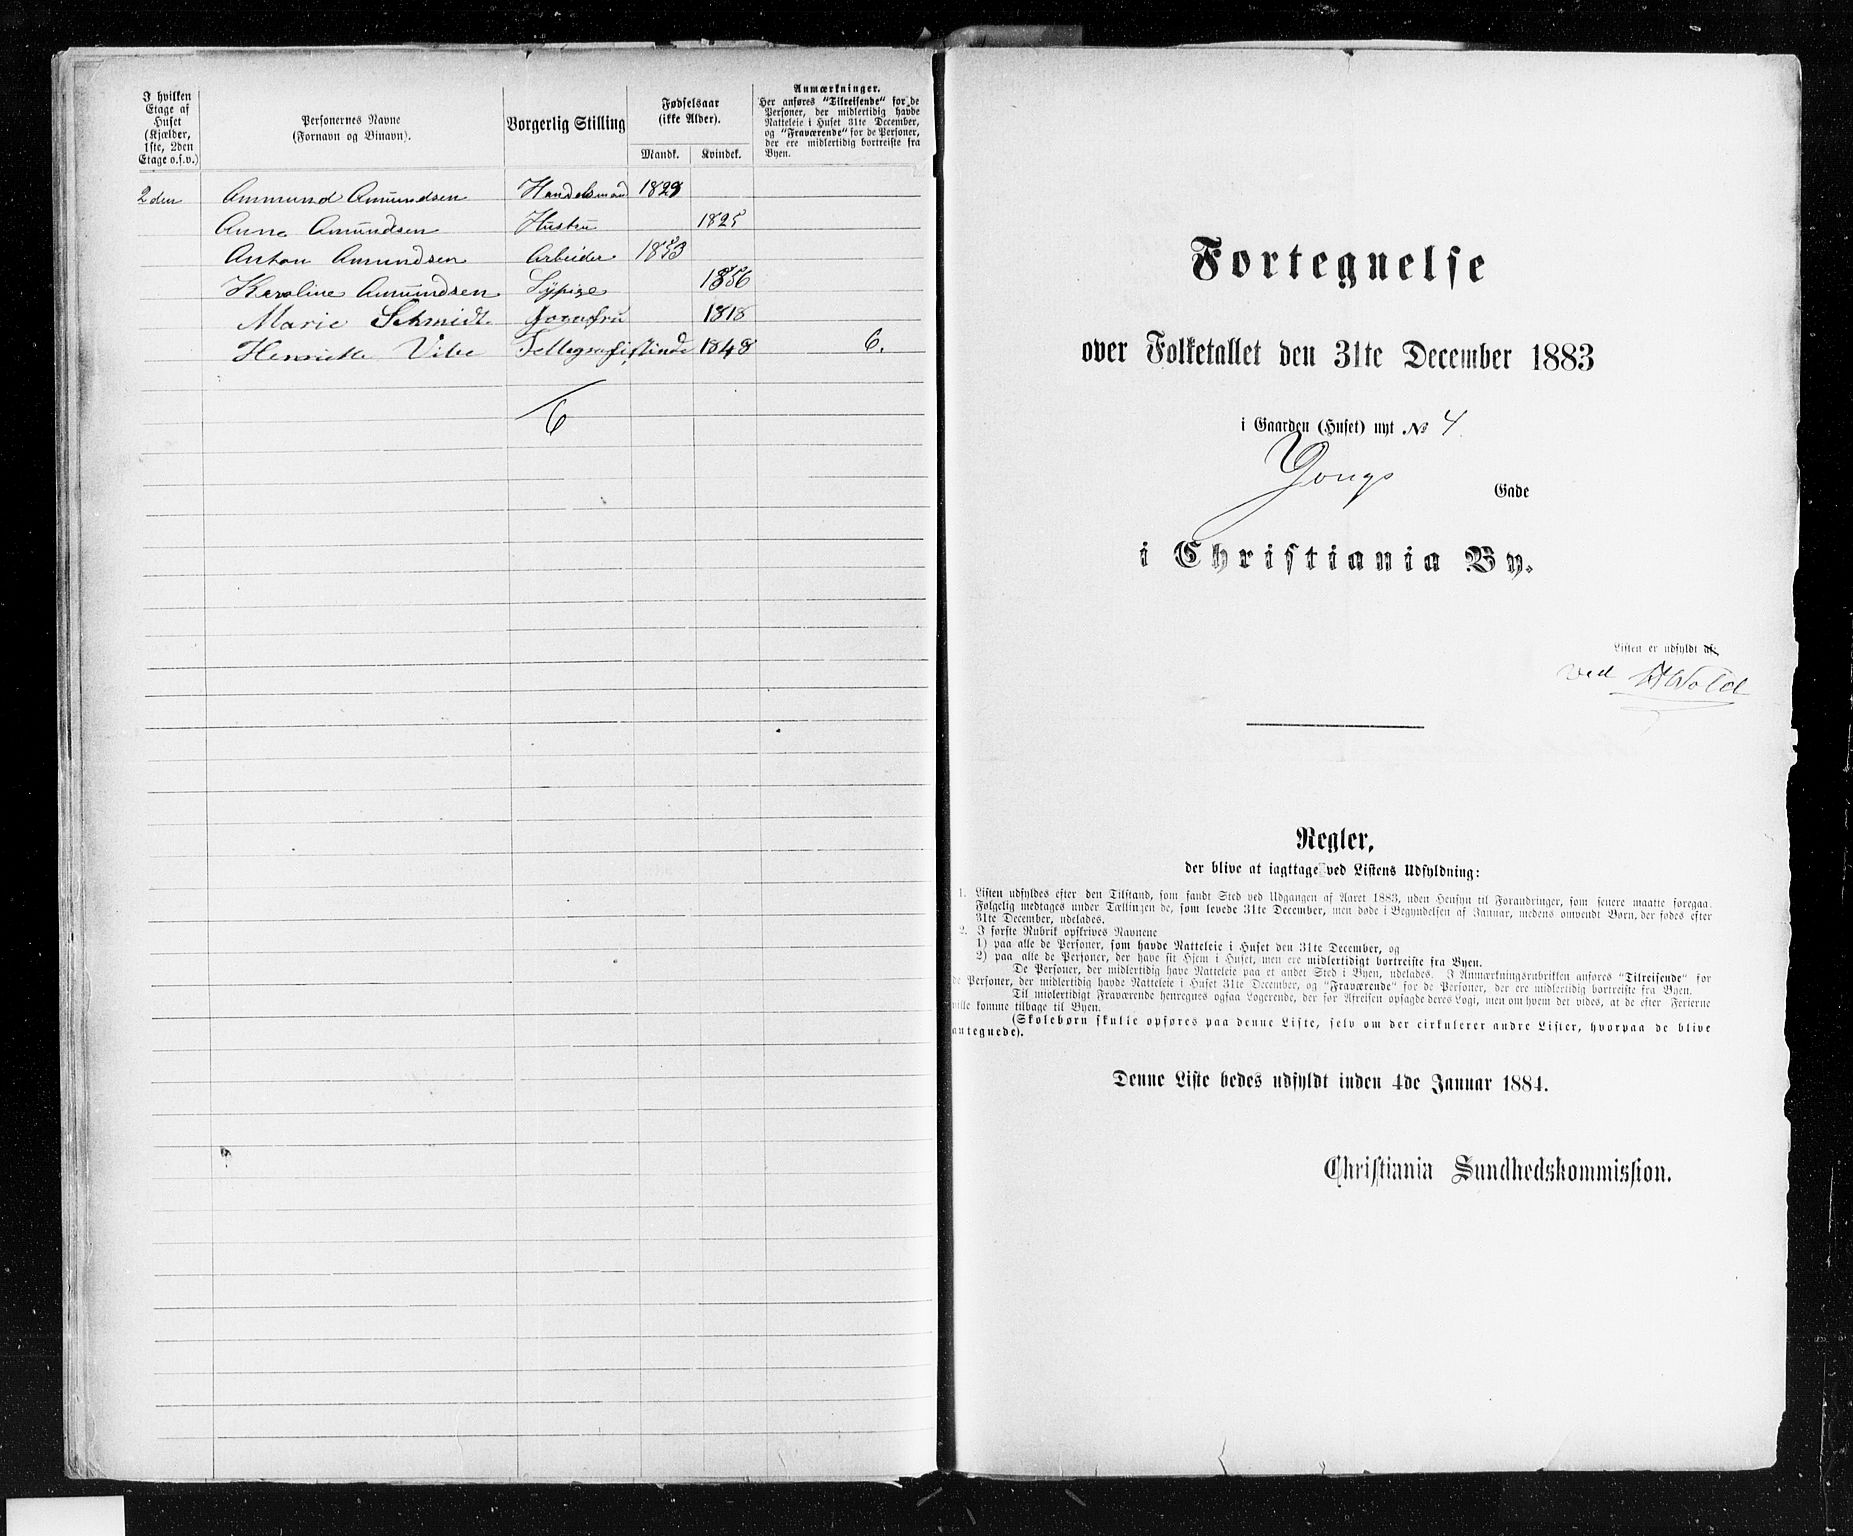 I hvilken
Etage af
Huset
(Kjælder,
1ste, 2den
Etage o.s.v.)
Personernes Navne
(Fornavn og Binavn).
Borgerlig Stilling
Fødselsaar
(ikke Alder).
Mandk. Kvindek.
Anmærkninger.
Her anføres "Tilreisende" for de
Personer, der midlertidig havde
Natteleie i Huset 31te December,
og "Fraværende" for de Personer,
der ere midlertidig bortreiste fra
Byen.
2den Ammund Amundsen Handelsmand 1829
Anna Amundsen Hustru 1825
Anton Amundsen Arbeider 1853
Karoline Amundsen Sypige 1856
Marie Schmidt Jomfru 1818
Henriette Vibe Tellegrafistinde 1848 6.
6
Fortegnelse
over Folketallet den 31te December 1883
i Gaarden (Huset) nyt № 4
Yongs Gade
i Christiania By.
Listen er udfyldt af:
ved Wold
Regler,
der blive at iagttage ved Listens Udfyldning:
1. Listen udfyldes efter den Tilstand, som fandt Sted ved Udgangen af Aaret 1883, uden Hensyn til Forandringer, som senere maatte foregaa.
Følgelig medtages under Tællingen de, som levede 31te December, men døde i Begyndelsen af Januar, medens omvendt Børn, der fødes efter
31te December, udelades.
2. I første Rubrik opskrives Navnene
1) paa alle de Personer, som havde Natteleie i Huset den 31te December, og
2) paa alle de Personer, der have sit Hjem i Huset, men ere midlertidigt bortreiste fra Byen.
De Personer, der midlertidig have Natteleie paa et andet Sted i Byen, udelades. I Anmærkningsrubrikken anføres "Tilreisende" for
de Personer, der midlertidig havde Natteleie i Huset 31te December, og "Fraværende" for de Personer, der ere midlertidig bortreiste fra Byen.
Til midlertidigt Fraværende henregnes ogsaa Logerende, der før Afreisen opsagde deres Logi, men om hvem det vides, at de efter Ferierne
ville komme tilbage til Byen.
(Skolebørn skulle opføres paa denne Liste, selv om der cirkulerer andre Lister, hvorpaa de blive
antegnede).
Denne Liste bedes udfyldt inden 4de Januar 1884.
Christiania Sundhedskommission.